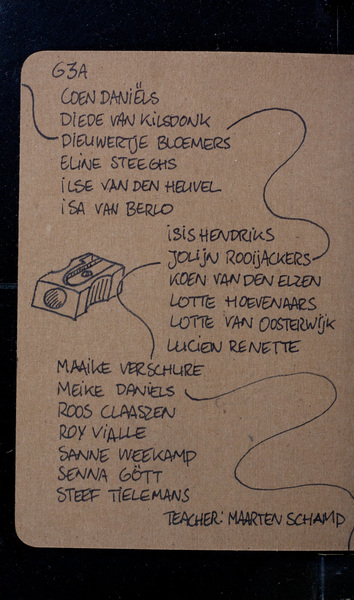 G3A
COEN DANIËLS
DIEDE VAN KILSDONK
DIEUWERTJE BLOEMERS
ELINE STEEGHS
ILSE VAN DEN HEUVEL
ISA VAN BERLO
IBIS HENDRIKS
JOLIJN ROOIJACKERS
KOEN VAN DEN ELZEN
LOTTE HOEVENAARS
LOTTE VAN OOSTERWIJK
LUCIEN RENETTE
MAAIKE VERSCHURE
MEIKE DANIELS
ROOS CLAASZEN
ROY VIALLE
SANNE WEEKAMP
SENNA GÖTT
STEEF TIELEMANS
TEACHER: MAARTEN SCHAMP